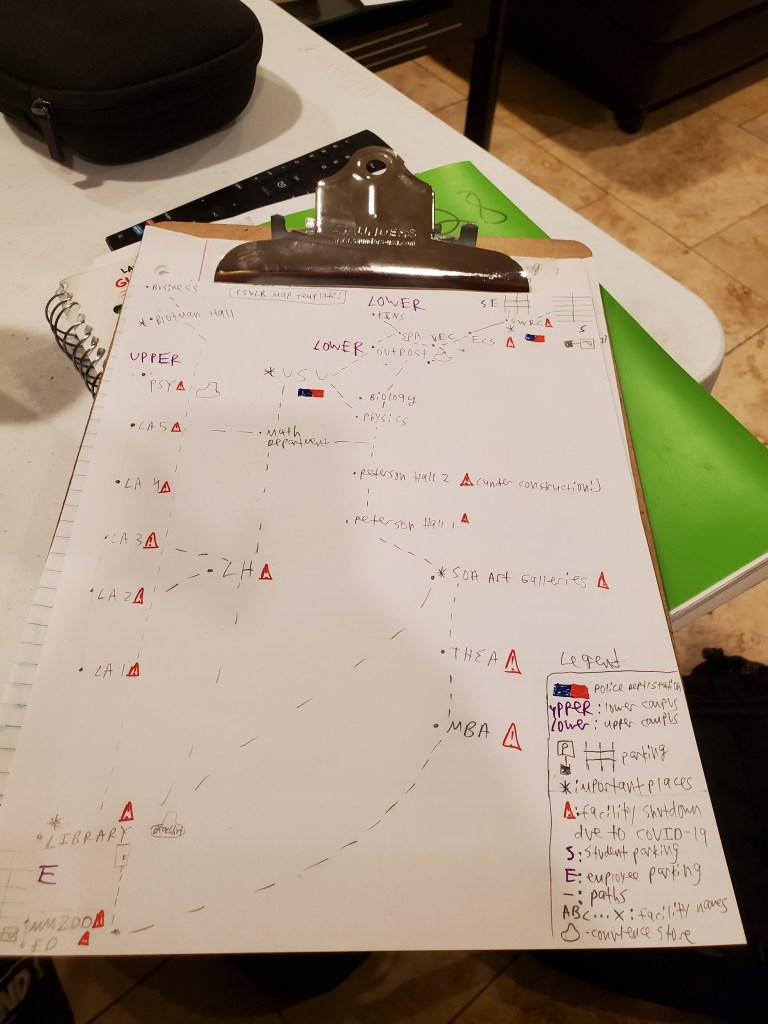 SAUNDERS
LA
CSULB MAP Template:
• Business
* • Brotman Hall
UPPER
PSY
• LA 5
• LA 4
• LA 3
• LA 2
• LA 1
*
• LIBRARY
E
ED
LOWER
• HINS
• SPA
VEC
ECS
LOWER
• OUTPOST
S E
• SWRC
*
S
* USU
• Biology
• Physics
• Math
Department
• Peterson Hall 2 (under construction!)
• Peterson Hall 1
• LH
• * SOA Art Galleries
• THEA
• MBA
Legend
Police dept/station
UPPER: lower campus
Lower: upper campus
P
parking
*: important places
: facility shutdown
due to COVID-19
S: Student parking
E: employee parking
—: paths
ABC...X: facility names